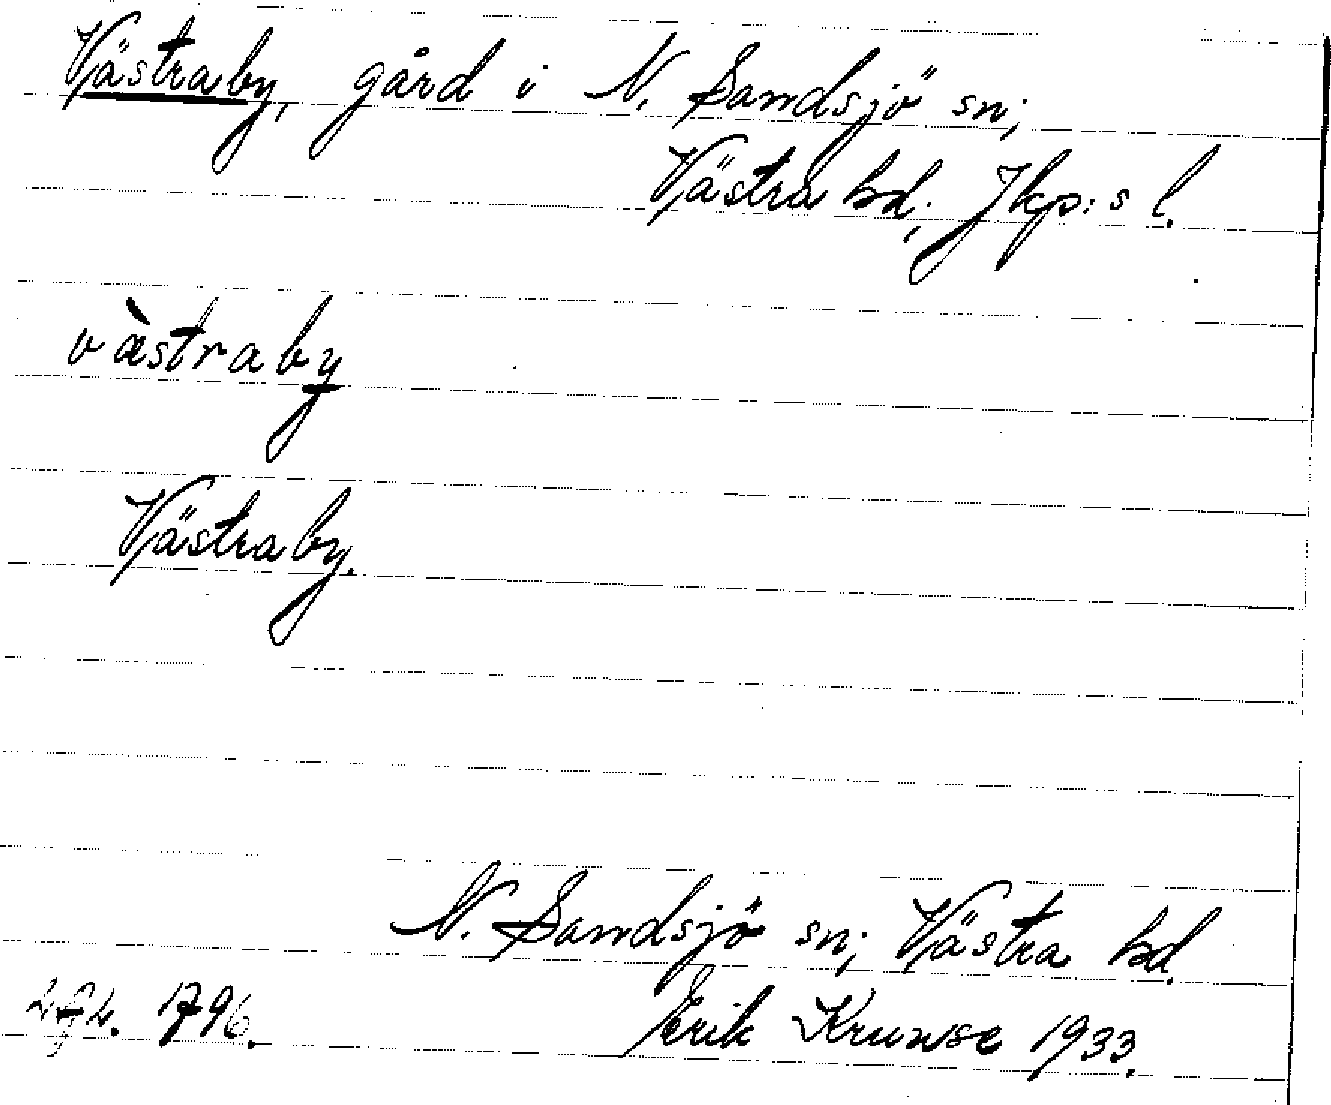 Västraby, gård i N. Sandsjö sn;
Västra hd; Jkp:s l.
vàstraby
Västraby.
N. Sandsjö sn; Västra hd.
1796. Erik Krunse 1933.